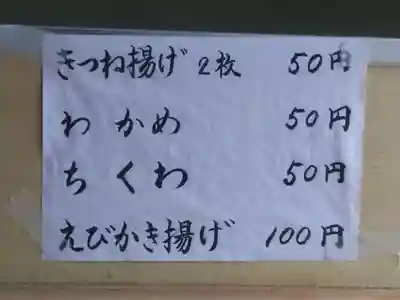 きつね揚げ 2枚 50円
わかめ 50円
ちくわ 50円
えびかき揚げ 100円